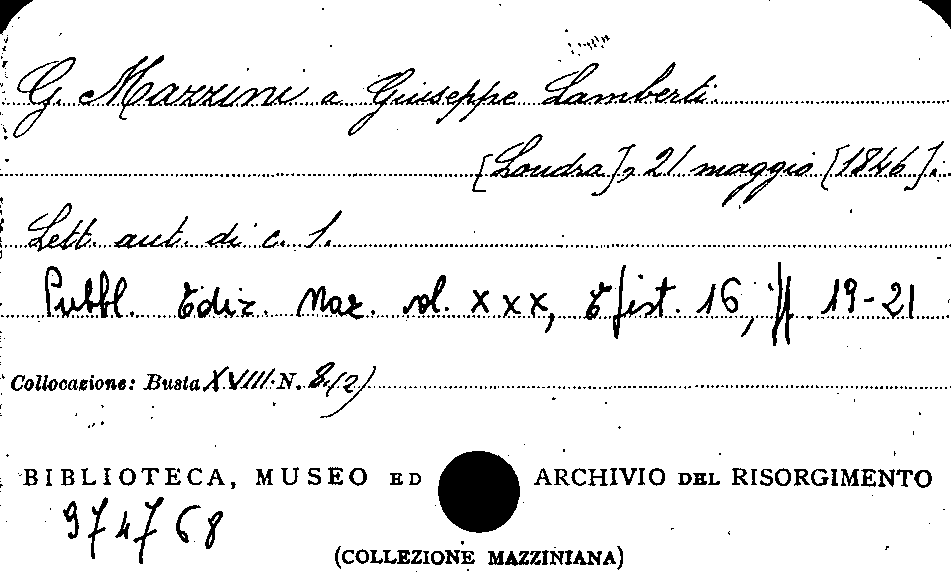 G. Mazzini a Giuseppe Lamberti.
[Londra], 21 maggio [1846].
Lett. aut. di c. 1.
Pubbl. Ediz. Naz. vol. XXX, Epist. 16, pp. 19-21
Collocazione: Busta XVIII N. 8(2)
BIBLIOTECA, MUSEO ED ARCHIVIO DEL RISORGIMENTO
974768
(COLLEZIONE MAZZINIANA)